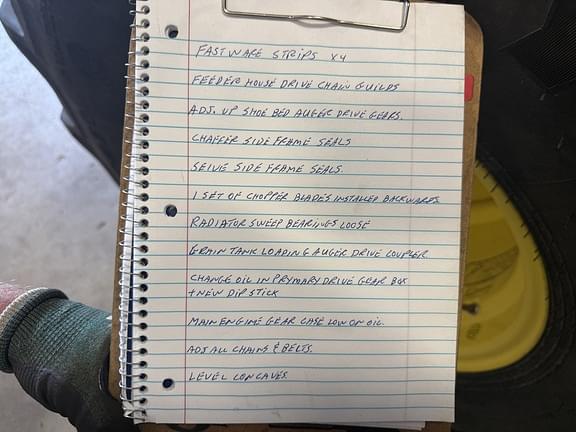 FAST WARE STRIPS X4
FEEDER HOUSE DRIVE CHAIN GUILDS
ADJ. UP SHOE BED AUGER DRIVE GEARS.
CHAFFER SIDE FRAME SEALS
SEIVE SIDE FRAME SEALS.
1 SET OF CHOPPER BLADES INSTALLED BACKWARDS.
RADIATOR SWEEP BEARINGS LOOSE
GRAIN TANK LOADING AUGER DRIVE COUPLER
CHANGE OIL IN PRYMARY DRIVE GEAR BOX
+ NEW DIP STICK
MAIN ENGINE GEAR CASE LOW ON OIL.
ADJ ALL CHAINS & BELTS.
LEVEL CONCAVES.